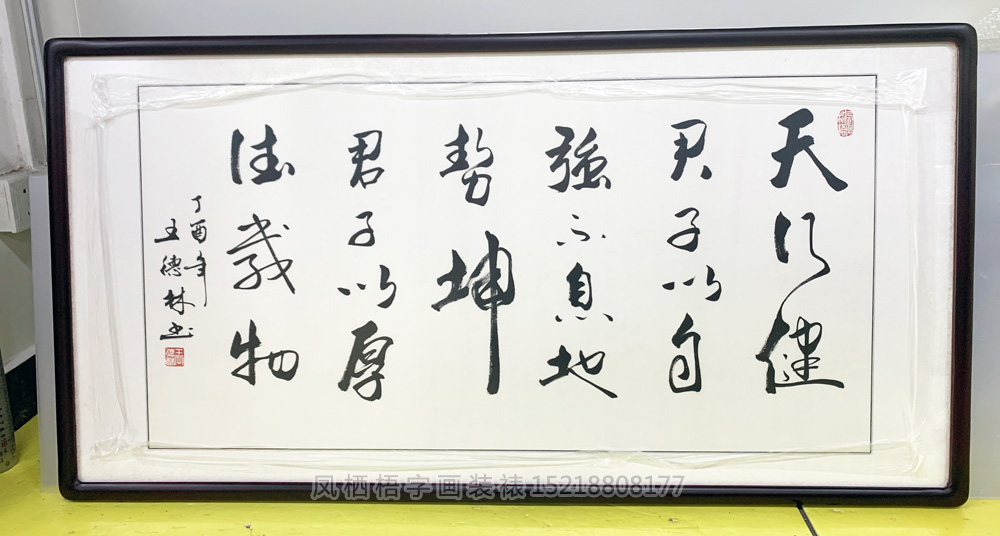 天行健
君子以自
強不息地
勢坤
君子以厚
德載物
丁酉年
王德林书
凤栖梧字画装裱15218808177